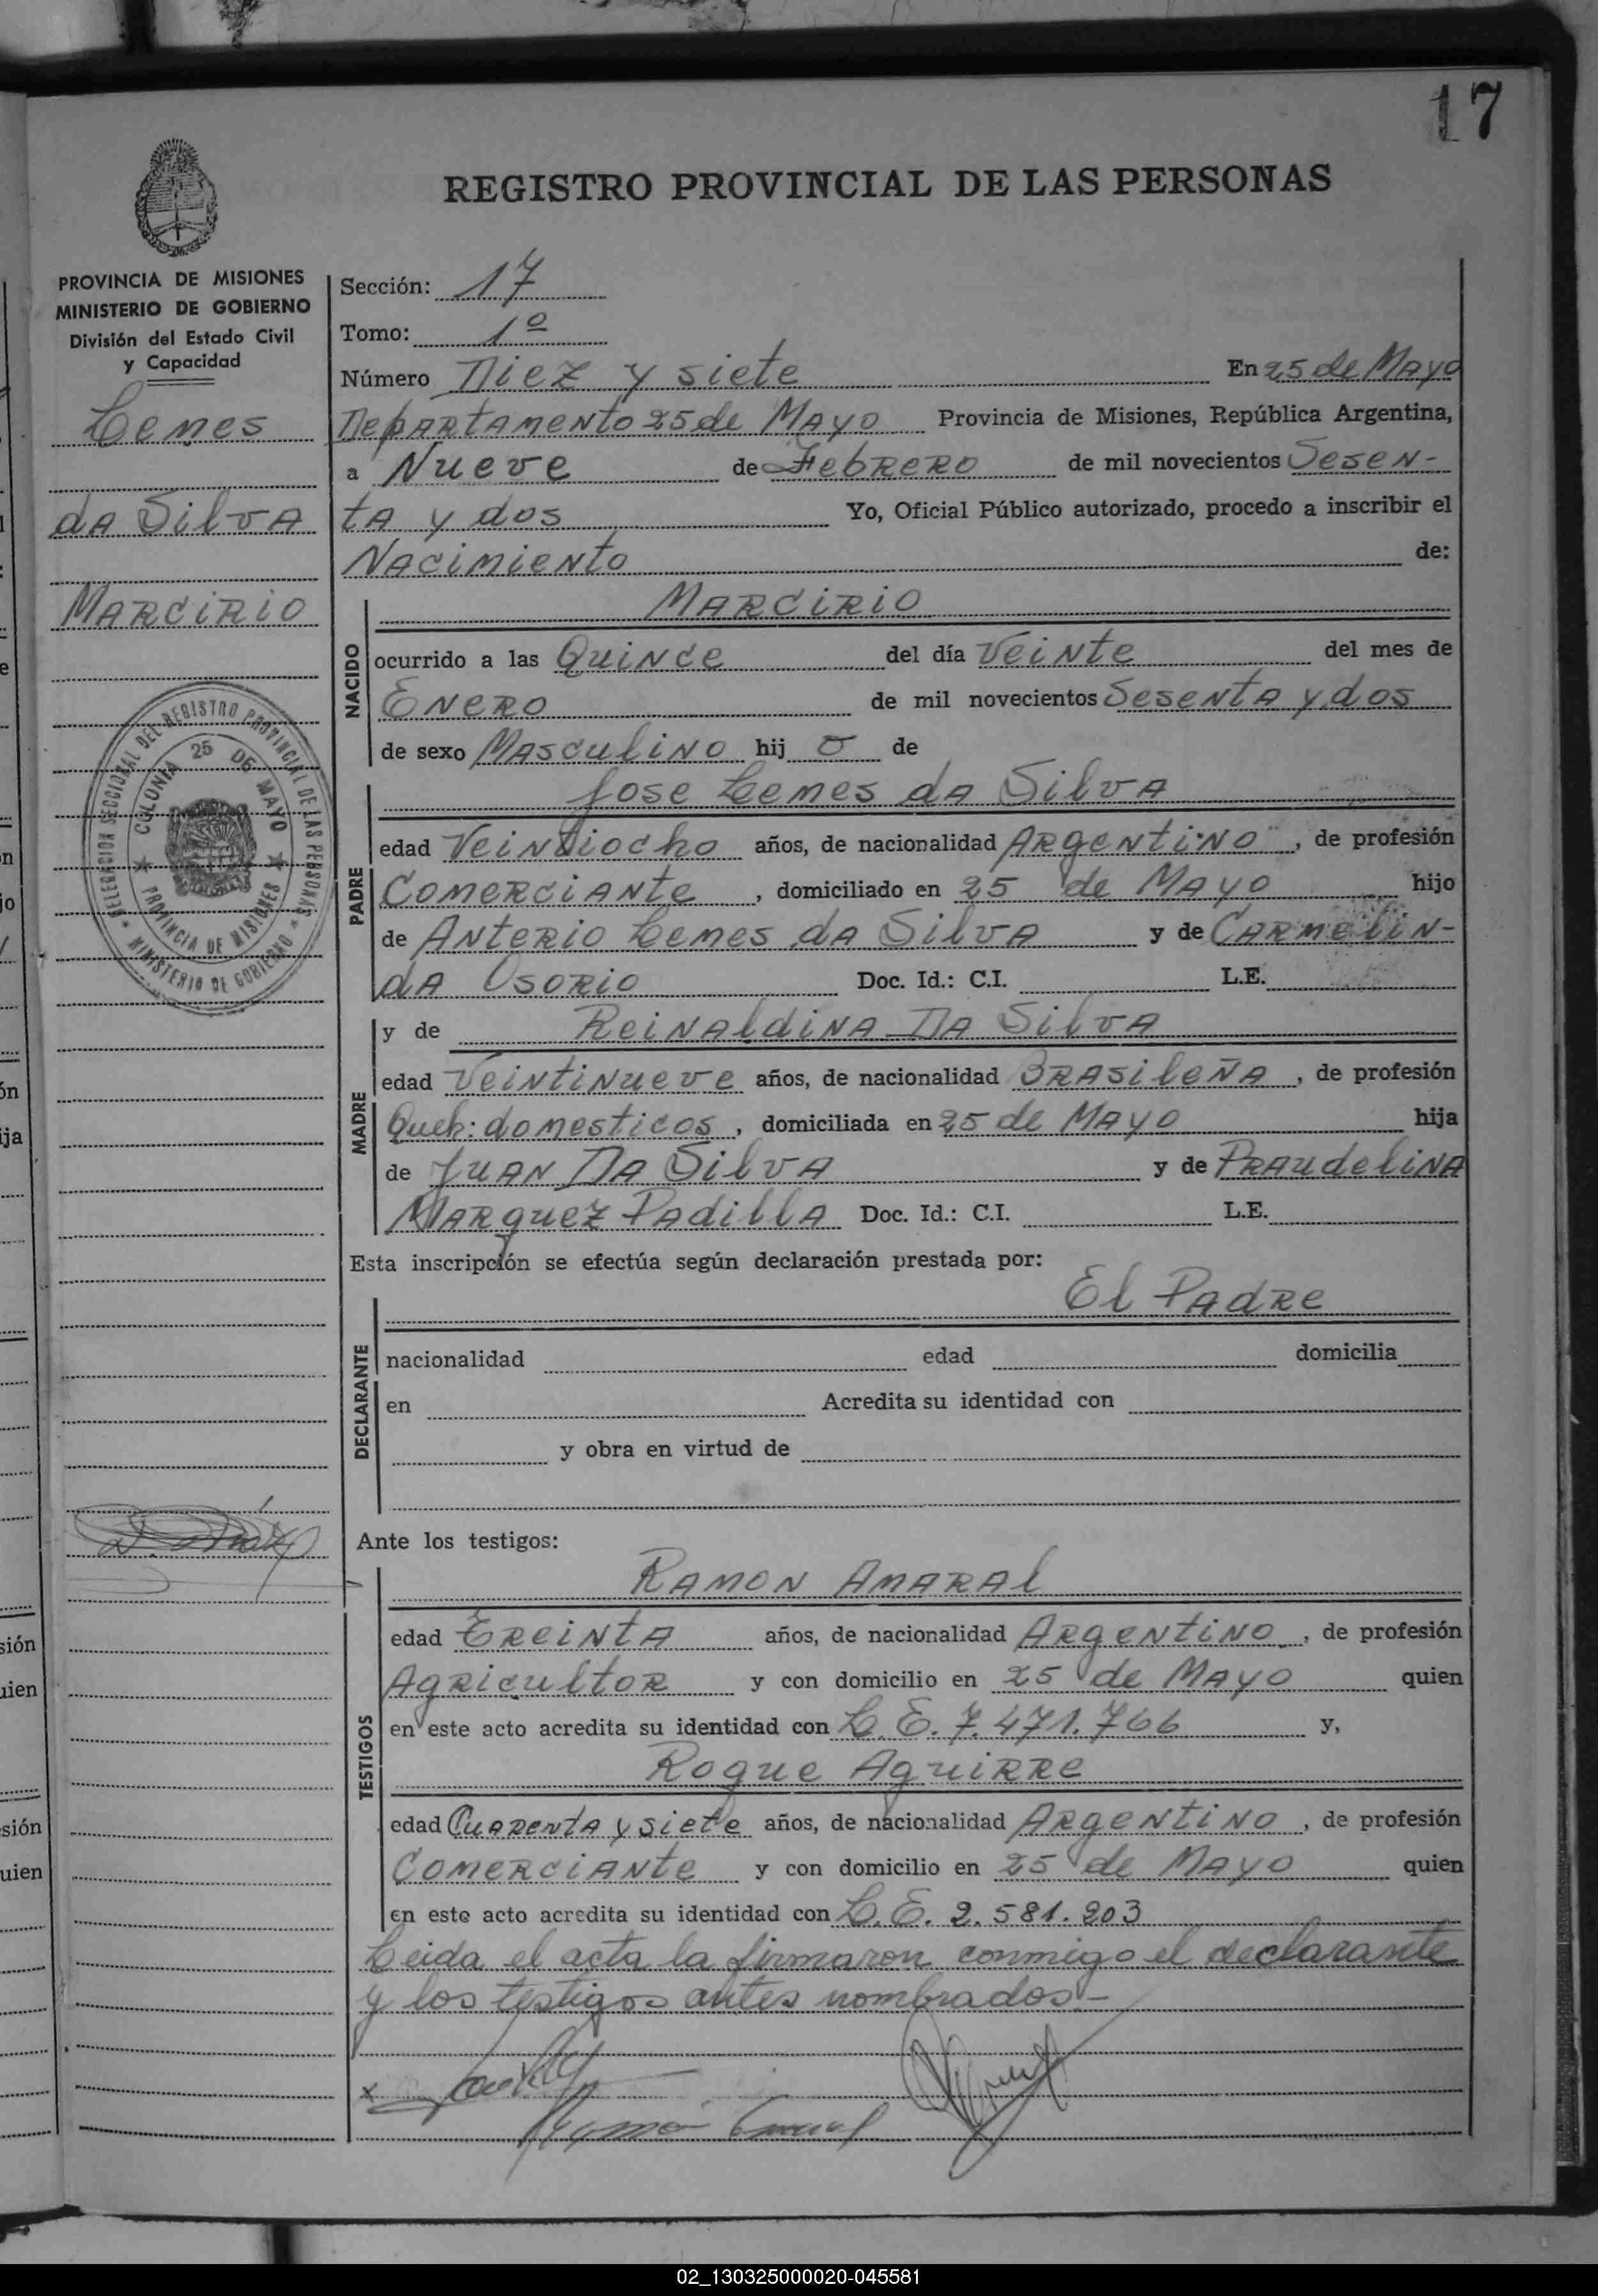 17
REGISTRO PROVINCIAL DE LAS PERSONAS
PROVINCIA DE MISIONES
MINISTERIO DE GOBIERNO
División del Estado Civil
y Capacidad
Lemes
da Silva
Marcirio
DELEGACION SECCIONAL DEL REGISTRO PROVINCIAL DE LAS PERSONAS
MINISTERIO DE GOBIERNO
COLONIA 25 DE MAYO
PROVINCIA DE MISIONES
Sección: 17
Tomo: 1º
Número Diez y siete En 25 de Mayo
Departamento 25 de Mayo Provincia de Misiones, República Argentina,
a Nueve de Febrero de mil novecientos Sesen-
ta y dos Yo, Oficial Público autorizado, procedo a inscribir el
Nacimiento de:
NACIDO
Marcirio
ocurrido a las Quince del día Veinte del mes de
Enero de mil novecientos Sesenta y dos
de sexo Masculino hij o de
PADRE
Jose Lemes da Silva
edad Veintiocho años, de nacionalidad Argentino, de profesión
Comerciante, domiciliado en 25 de Mayo hijo
de Anterio Lemes da Silva y de Carmelin-
da Osorio Doc. Id.: C.I. L.E.
MADRE
y de Reinaldina Da Silva
edad Veintinueve años, de nacionalidad Brasileña, de profesión
Queh: domesticos, domiciliada en 25 de Mayo hija
de Juan Da Silva y de Praudelina
Marquez Padilla Doc. Id.: C.I. L.E.
Esta inscripción se efectúa según declaración prestada por:
DECLARANTE
El Padre
nacionalidad edad domicilia
en Acredita su identidad con
y obra en virtud de
Ante los testigos:
TESTIGOS
Ramon Amaral
edad Treinta años, de nacionalidad Argentino, de profesión
Agricultor y con domicilio en 25 de Mayo quien
en este acto acredita su identidad con L.E. 7.471.766 y,
Roque Aguirre
edad Cuarenta y siete años, de nacionalidad Argentino, de profesión
Comerciante y con domicilio en 25 de Mayo quien
en este acto acredita su identidad con L.E. 2.581.203
Leida el acta la firmaron conmigo el declarante
y los testigos antes nombrados.-
02_130325000020-045581